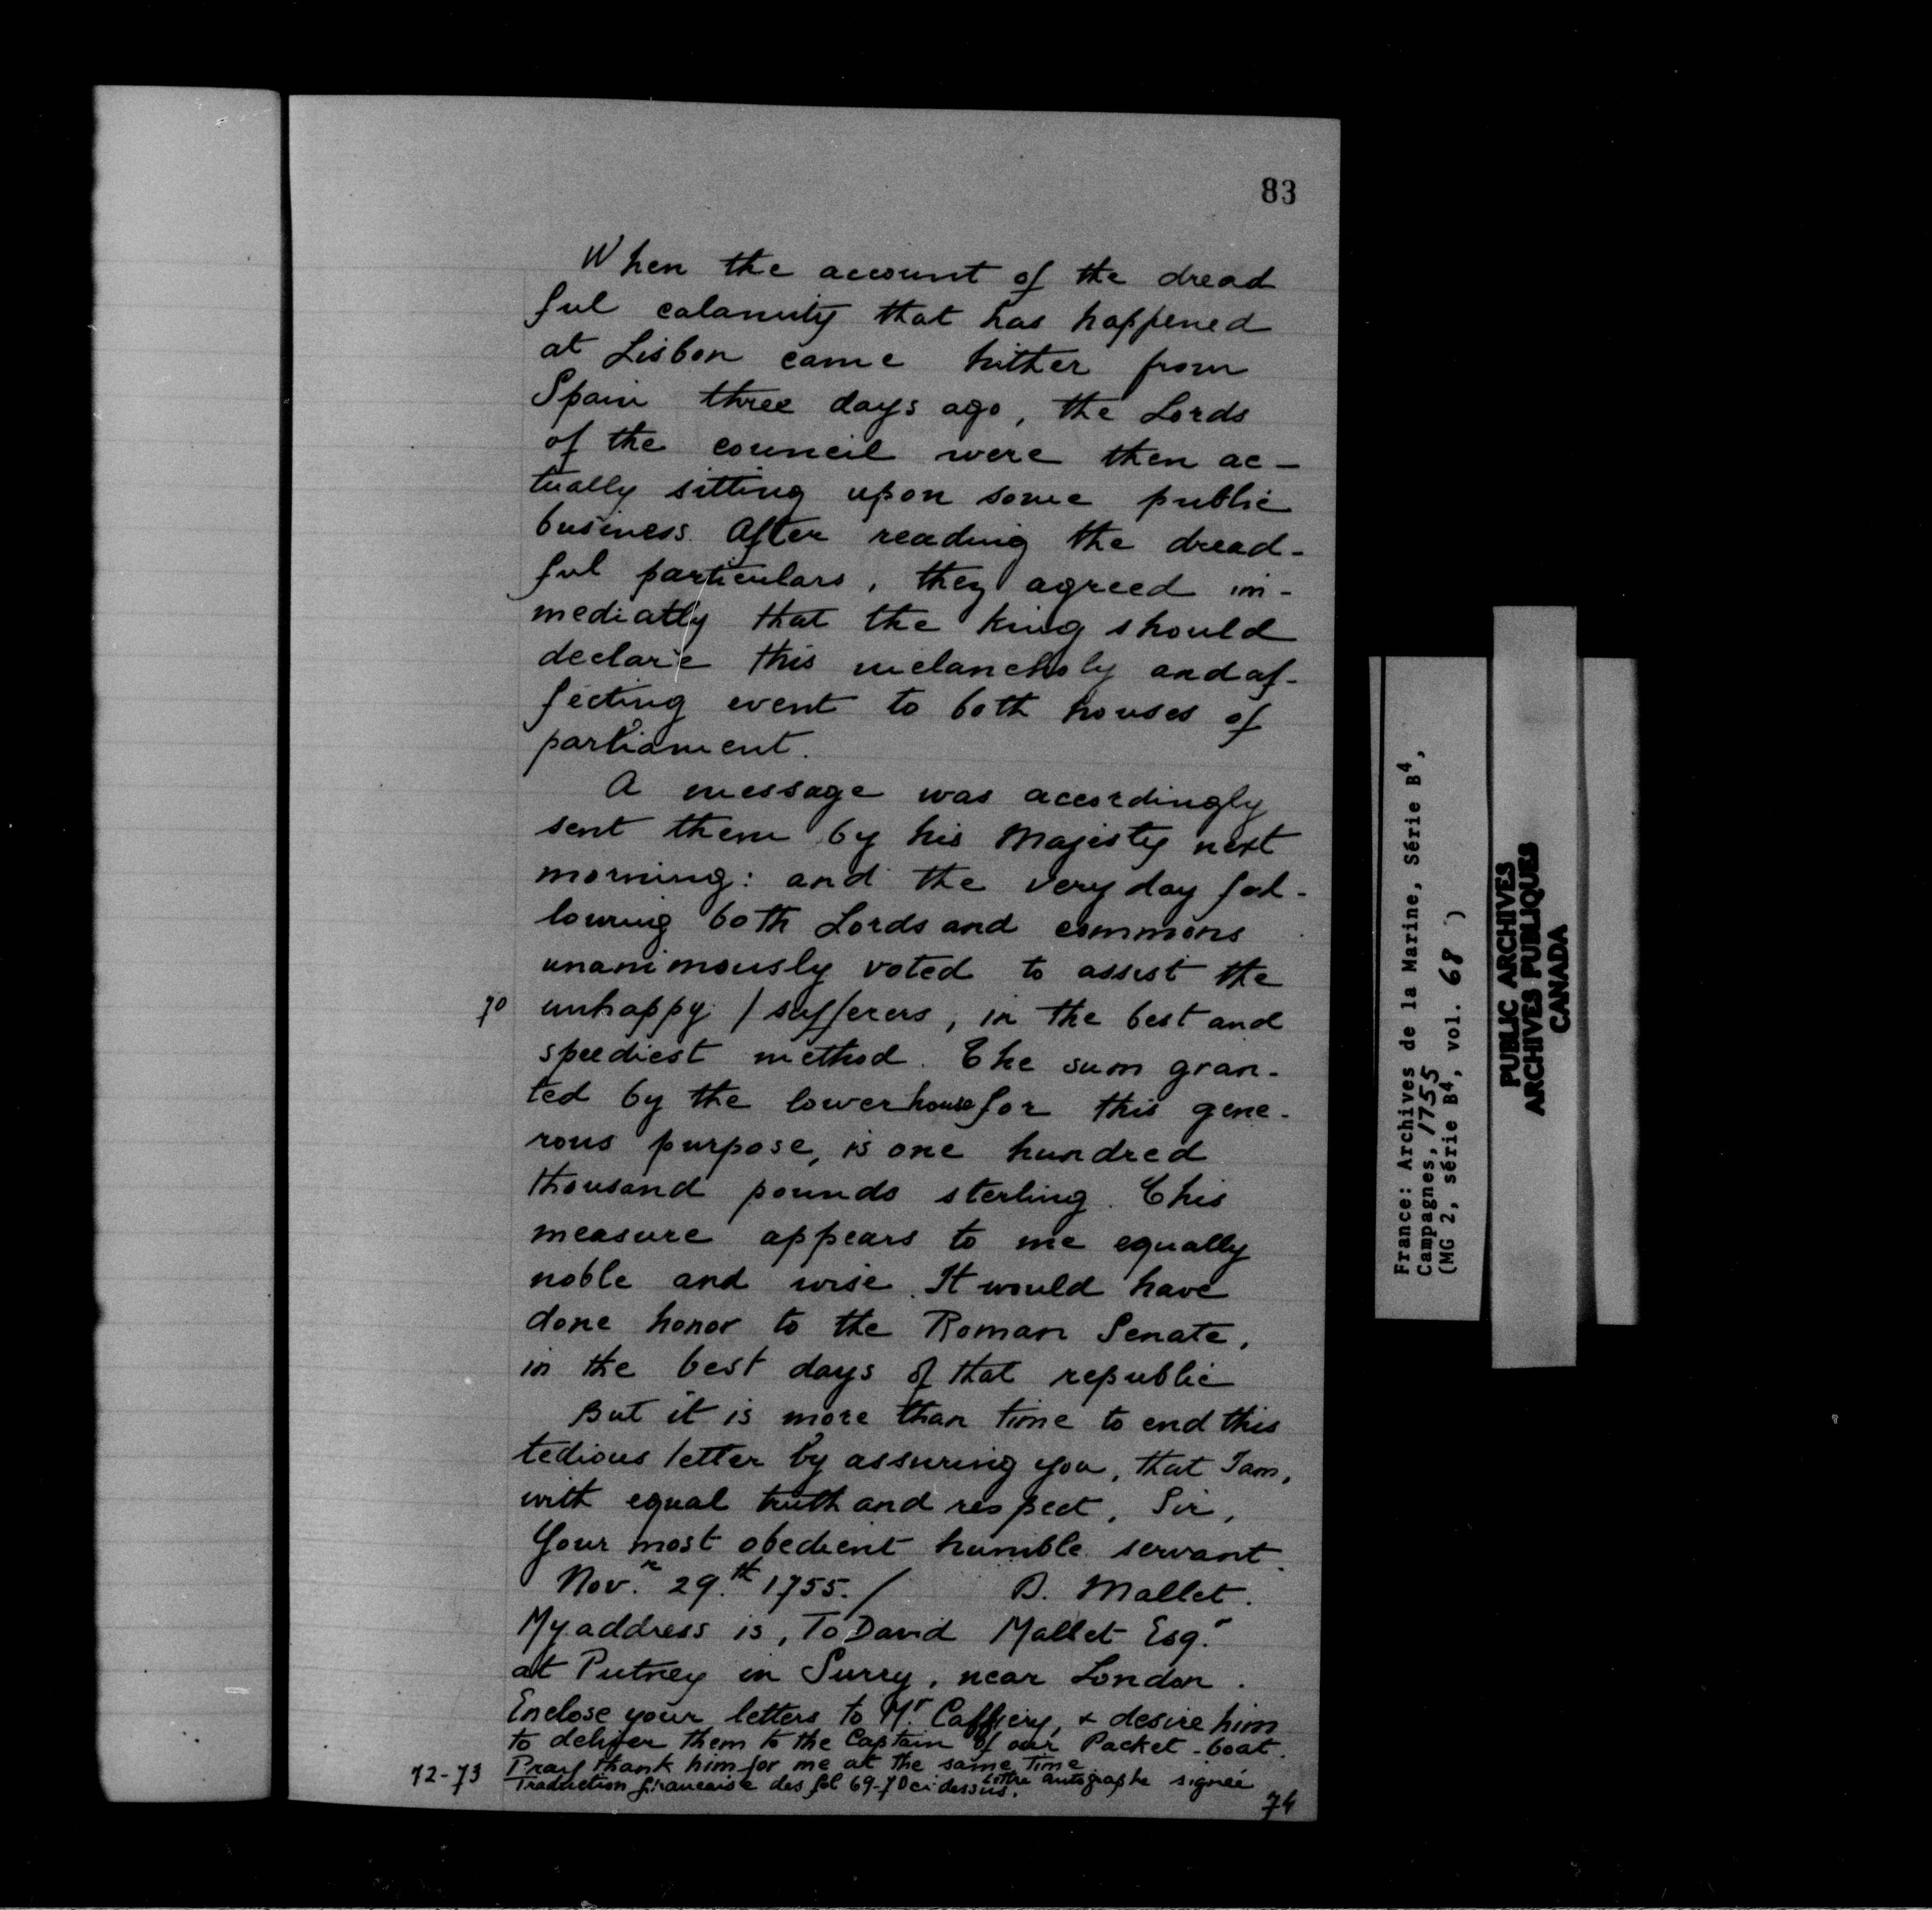 83
When the account of the dread
ful calamity that has happened
at Lisbon came hither from
Spain three days ago, the Lords
of the council were then ac-
tually sitting upon some public
business. After reading the dread-
ful particulars, they agreed im-
mediatly that the King should
declare this melancholy and af-
fecting event to both houses of
parliament.
A message was accordingly
sent them by his Majesty next
morning: and the very day fol-
lowing both Lords and commons
unanimously voted to assist the
70 unhappy / sufferers, in the best and
speediest method. The sum gran-
ted by the lower house for this gene-
rous purpose, is one hundred
thousand pounds sterling. This
measure appears to me equally
noble and wise. It would have
done honor to the Roman Senate,
in the best days of that republic
But it is more than time to end this
tedious letter by assuring you, that I am,
with equal truth and respect, Sir,
Your most obedient humble servant.
Nov.r 29.th 1755. / D. Mallet.
My address is, To David Mallet Esq.r
at Putney in Surry, near London.
Enclose your letters to Mr Caffiery, & desire him
to deliver them to the Captain of our Packet-boat.
Pray thank him for me at the same time
72-73 Traduction francaise des fol 69-70 ci dessus. Lettre autographe signée
74
France: Archives de la Marine, Série B4,
Campagnes, 1755
(MG 2, série B4, vol. 68 )
PUBLIC ARCHIVES
ARCHIVES PUBLIQUES
CANADA